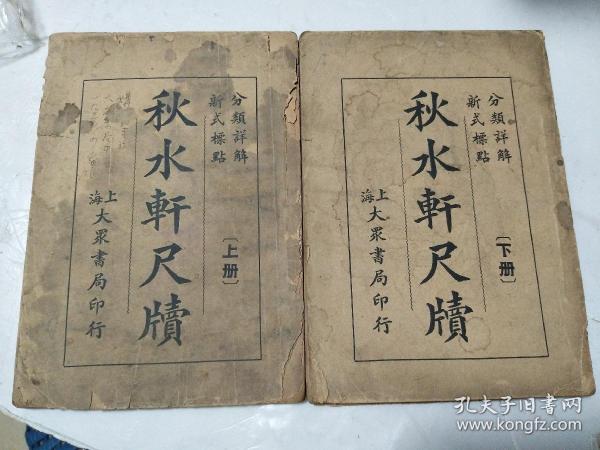 分類詳解
新式標點
秋水軒尺牘
〔上册〕
上海大眾書局印行
分類詳解
新式標點
秋水軒尺牘
〔下册〕
上海大眾書局印行
孔夫子旧书网
www.kongfz.com